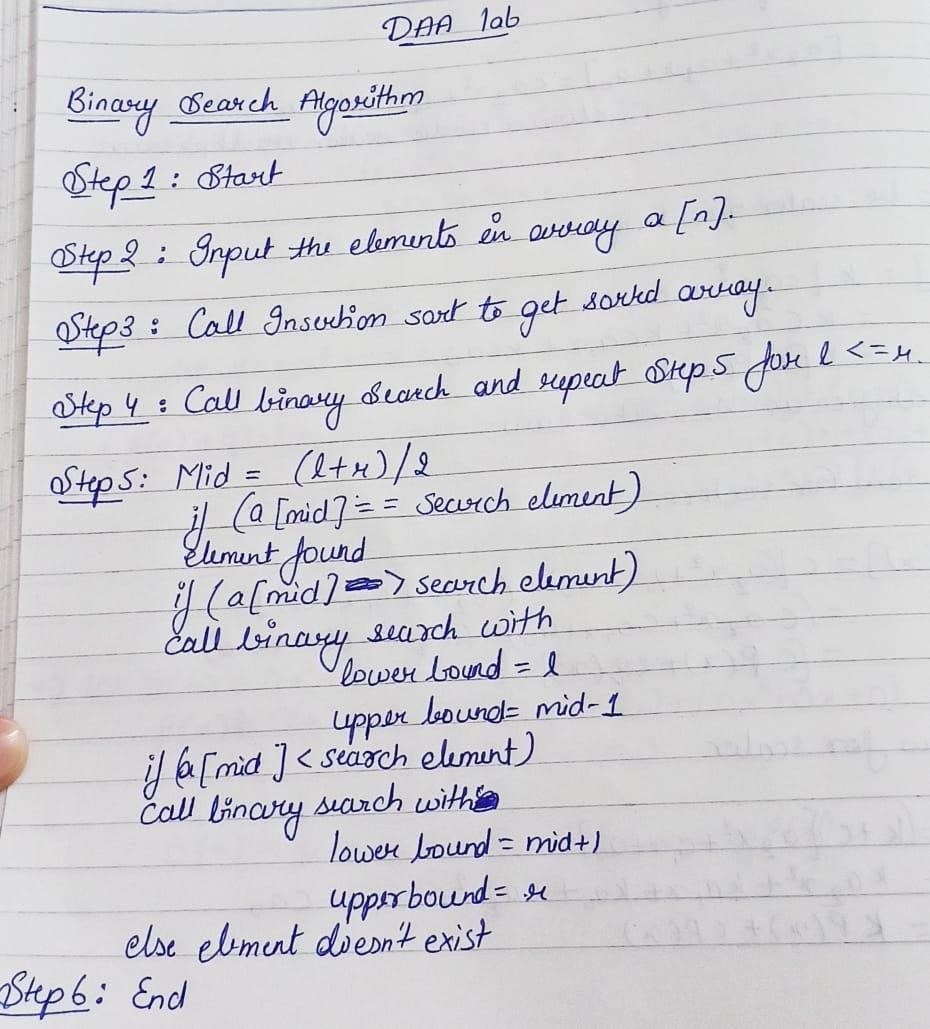 DAA lab
Binary Search Algorithm
Step 1 : Start
Step 2 : Input the elements in array a [n].
Step 3 : Call Insertion sort to get sorted array.
Step 4 : Call binary search and repeat Step 5 for l <= r.
Step 5 : Mid = (l+r)/2
if (a [mid] == search element)
element found
if (a[mid] > search element)
call binary search with
lower bound = l
upper bound = mid-1
if (a[mid] < search element)
call binary search with
lower bound = mid+1
upper bound = r
else element doesn't exist
Step 6 : End